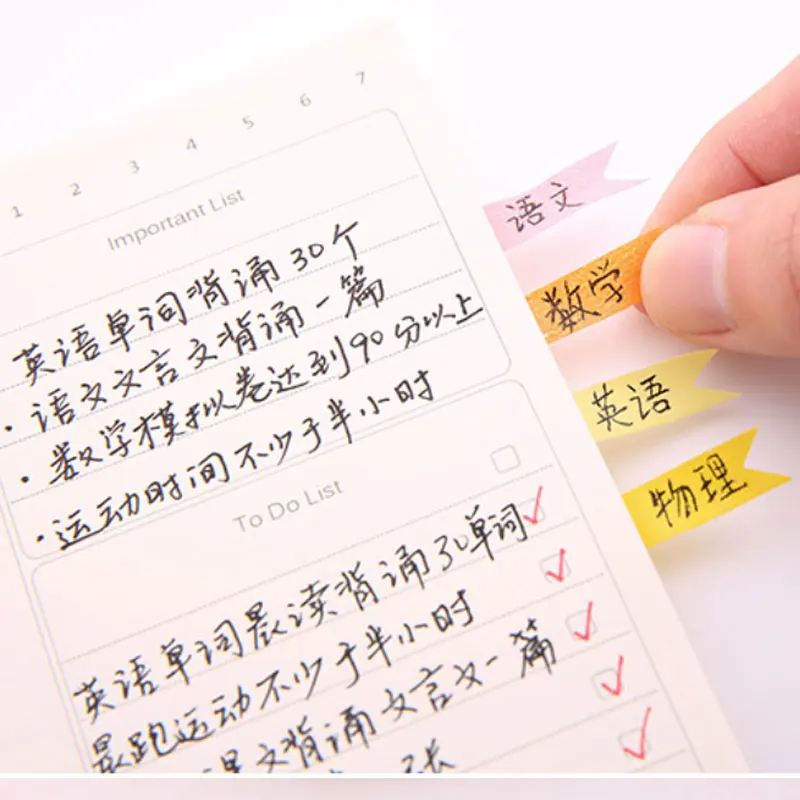 1 2 3 4 5 6 7
Important List
英语单词背诵30个
·语文文言文背诵一篇
·数学模拟卷达到90分以上
·运动时间不少于半小时
To Do List
英语单词晨读背诵30单词
晨跑运动不少于半小时
课文背诵文言文一篇
张
语文
数学
英语
物理